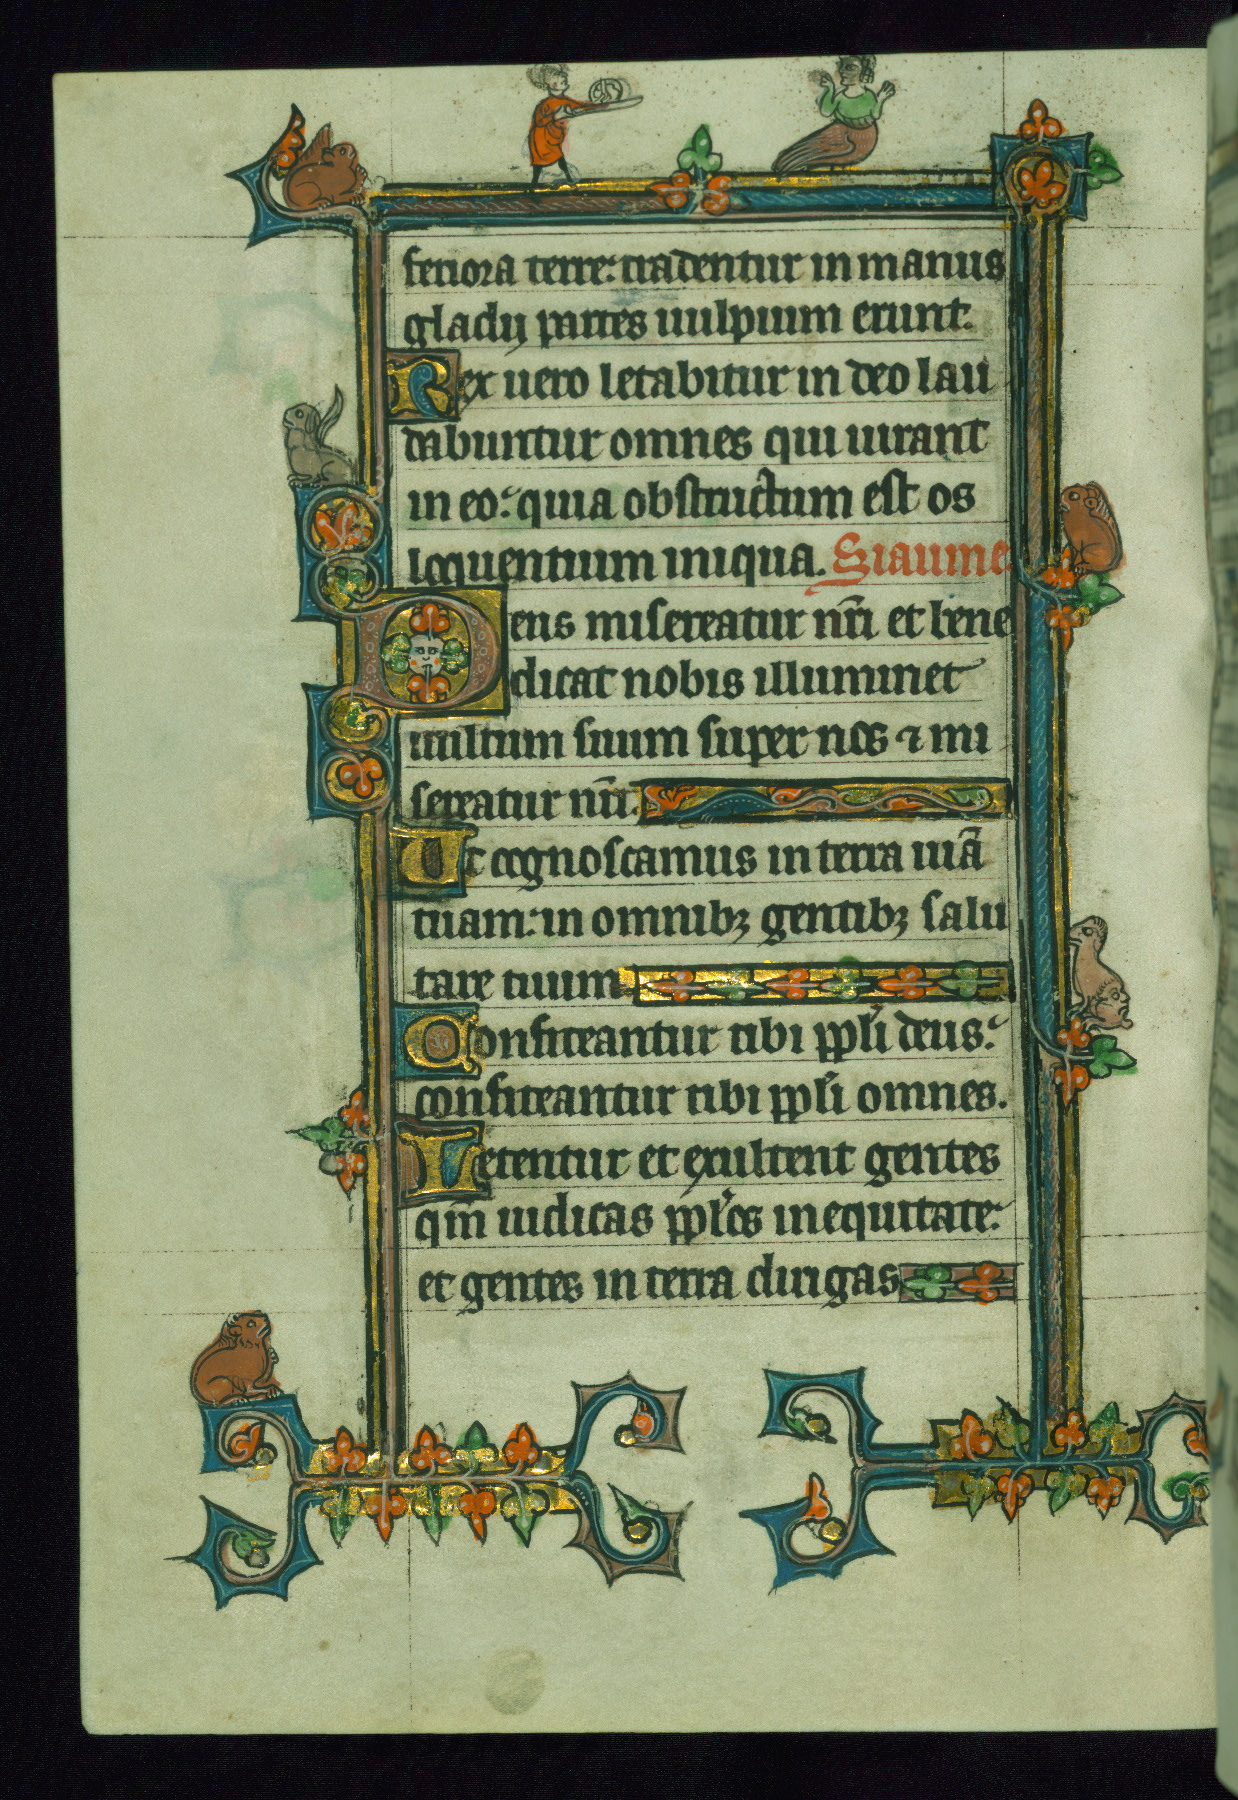 feriora terre: tradentur in manus
gladij partes uulpium erunt.
Rex uero letabitur in deo lau
dabuntur omnes qui iurant
in eo: quia obstructum est os
loquentium iniqua.
Deus misereatur nr̄i et bene
dicat nobis illuminet
uultum suum super nos ⁊ mi
sereatur nr̄i.
Ut cognoscamus in terra uiā
tuam: in omnibꝫ gentibꝫ salu
tare tuum.
Confiteantur tibi ppl̄i deus:
confiteantur tibi ppl̄i omnes.
Letentur et exultent gentes
qm̄ iudicas ppl̄os in equitate:
et gentes in terra dirigas